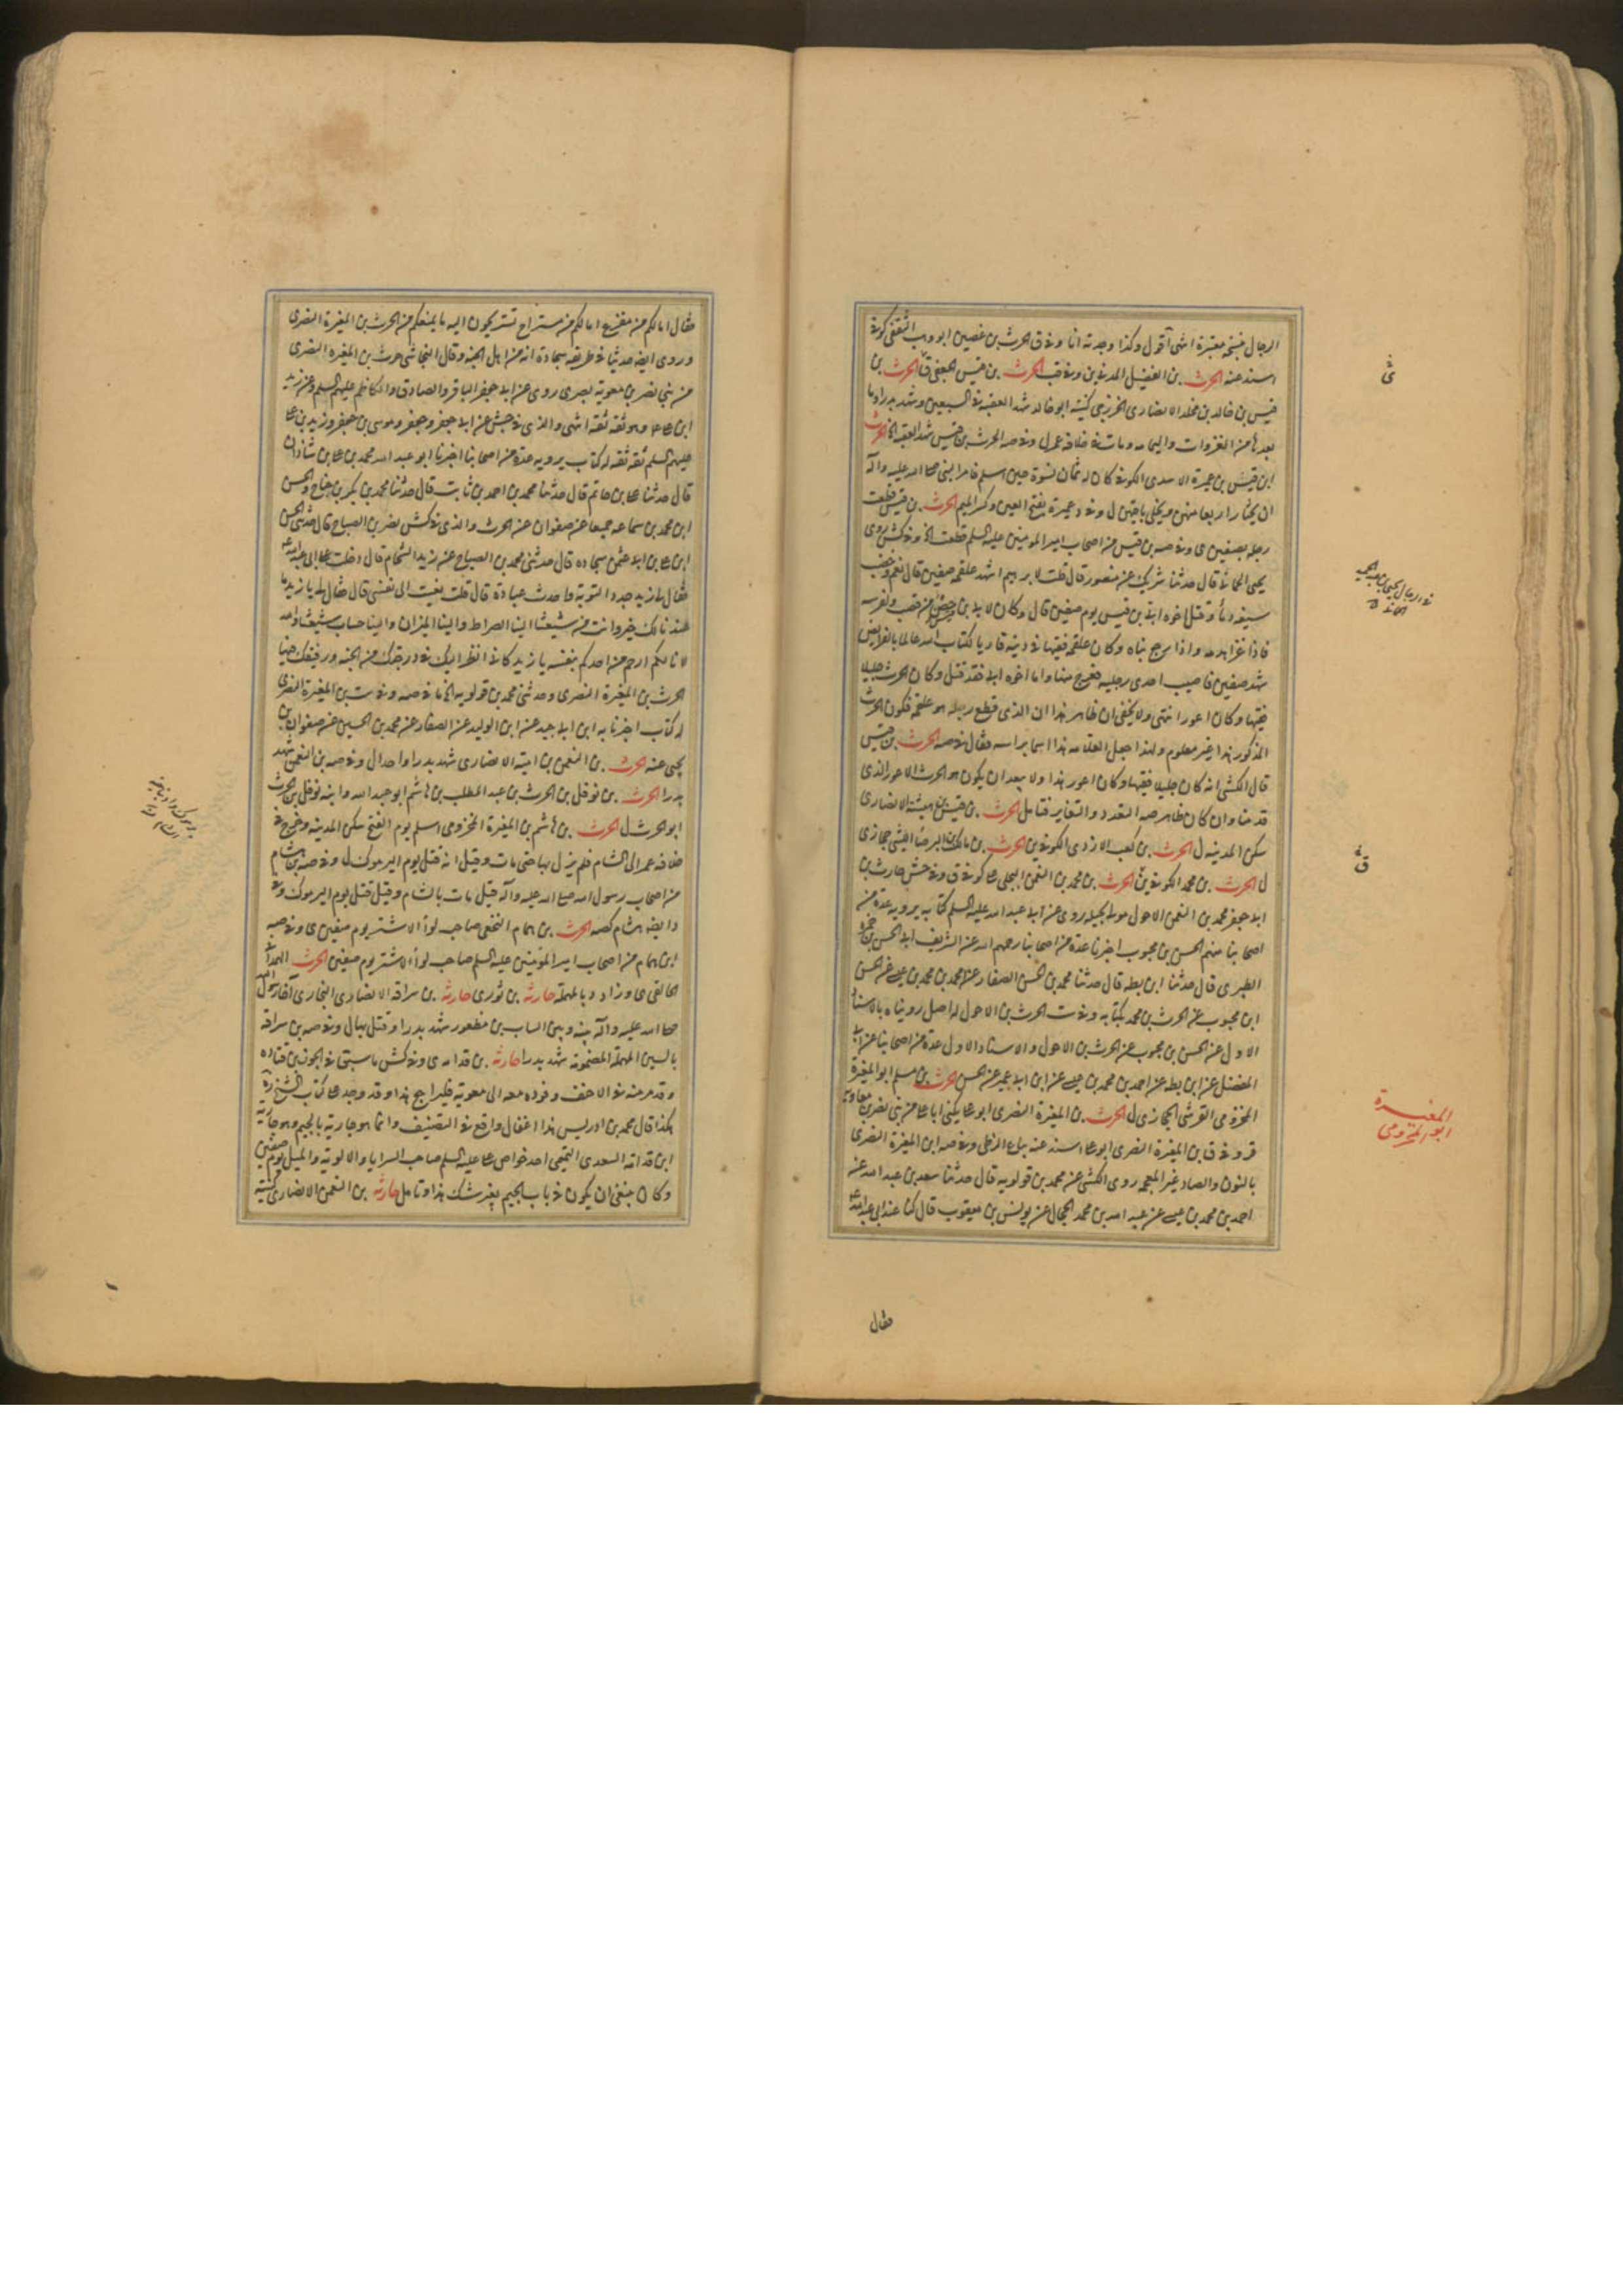 الرجال بنسخة معتبرة انتهى اقول وكذا وجدته انا وفى ق الحرث بن غصين ابو وهب الثقفى كوفى
اسند عنه الحرث بن الفضيل المدنى ين وفى قب الحرث بن قيس الجعفى ق الحرث بن
قيس بن خالد بن مخلد الانصارى الخزرجى كنيته ابو خالد شهد العقبة فى السبعين وشهد بدرا وما
بعدها من الغزوات واليمامه ومات فى خلافة عمر ل وفى صه الحرث بن قيس شهد العقبة الخ الحرث
ابن قيس بن عميرة الاسدى الكوفى كان له ثمان نسوة حين اسلم فامره النبى صلى الله عليه وآله
ان يختار اربعا منهن ويخلى باقيتهن ل وفى د عميرة بفتح العين وكسر الميم الحرث بن قيس قطعت
رجله بصفين ى وفى صه بن قيس من اصحاب امير المؤمنين عليه السلم قطعت الخ وفى كش روى
يحيى الحمانى قال حدثنا شريك عن منصور قال قلت لابرهيم اشهد علقمة صفين قال نعم وخضب
سيفه دما وقتل اخوه ابى بن قيس يوم صفين قال وكان لابى بن قيس خص من قصب ولفرسه
فاذا غزا هدمه واذا رجع بناه وكان علقمة فقيها فى دينه قاريا لكتاب الله عالما بالفرايض
شهد صفين فاصيب احدى رجليه فعرج منها واما اخوه ابى فقد قتل وكان الحرث جليلا
فقيها وكان اعور انتهى ولا يخفى ان ظاهر هذا ان الذى قطع رجله هو علقمة فكون الحرث
المذكور هذا غير معلوم ولهذا جعل العلامه هذا اسما براسه فقال فى صه الحرث بن قيس
قال الكشى انه كان جليلا فقيها وكان اعور هذا ولا يبعد ان يكون هو الحرث الاعور الذى
قدمنا وان كان ظاهر صه التعدد والتغاير فتامل الحرث بن قيس بن هيشة الانصارى
سكن المدينه ل الحرث بن كعب الازدى الكوفى ين الحرث بن مالك بن البرصا الليثى حجازى
ل الحرث بن محمد الكوفى ين الحرث بن محمد بن النعمن البجلى كوفى ق وفى جش حارث بن
ابى جعفر محمد بن النعمن الاحول مولى بجيله روى عن ابى عبد الله عليه السلم كتابه يرويه عدة من
اصحابنا منهم الحسن بن محبوب اخبرنا عدة من اصحابنا رحمهم الله عن الشريف ابى الحسن بن حمزة
الطبرى قال حدثنا ابن بطه قال حدثنا محمد بن الحسن الصفار عن احمد بن محمد بن عيسى عن الحسن
ابن محبوب عن الحرث بن محمد بكتابه وفى ست الحرث بن الاحول له اصل رويناه بالاسناد
الاول عن الحسن بن محبوب عن الحرث بن الاحول والاسناد الاول عدة من اصحابنا عن ابى
المفضل عن ابن بطه عن احمد بن محمد بن عيسى عن ابن ابى عمير عن الحسن الحرث بن مسلم ابو المغيرة
المخزومى القرشى الحجازى ل الحرث بن المغيرة النصرى ابو على يكنى ابا على من بنى نصر بن معاويه
قر وفى ق ابن المغيرة النصرى ابو على اسند عنه بياع الزطى وفى صه ابن المغيرة النصرى
بالنون والصاد غير المعجمه روى الكشى عن محمد بن قولويه قال حدثنا سعد بن عبد الله عن
احمد بن محمد بن عيسى عن عبد الله بن محمد الحجال عن يونس بن يعقوب قال كنا عند ابى عبد الله ع
فقال
المغيرة
ابو المخزومى
فقال امالكم من مفزع امالكم من مستراح تستريحون اليه ما يمنعكم من الحرث بن المغيرة النصرى
وروى ايضا حديثا فى طريقه سجادة انه من اهل الجنه وقال النجاشى حرث بن المغيره النصرى
من بنى نصر بن معوية بصرى روى عن ابى جعفر الباقر والصادق والكاظم عليهم السلم وعن زيد
ابن على وهو ثقه ثقه انتهى والذى فى جش عن ابى جعفر وجعفر وموسى بن جعفر وزيد بن على
عليهم السلم ثقه ثقه له كتاب يرويه عدة من اصحابنا اخبرنا ابو عبد الله محمد بن على بن شاذان
قال حدثنا على بن حاتم قال حدثنا محمد بن احمد بن ثابت قال حدثنا محمد بن بكر بن جناح والحسن
ابن محمد بن سماعه جميعا عن صفوان عن الحرث والذى فى كش نصر بن الصباح قال حدثنى الحسن
ابن على بن ابى عثمن سجاده قال حدثنى محمد بن الصباح عن زيد الشحام قال دخلت على ابى عبد الله ع
فقال لى يا زيد جدد التوبة واحدث عبادة قال قلت نعيت الى نفسى قال فقال لى يا زيد ما
عندنا لك خير وانت من شيعتنا الينا الصراط والينا الميزان والينا حساب شيعتنا والله
لانا لكم ارحم من احدكم بنفسه يا زيد كانى انظر اليك فى درجتك من الجنه ورفيقك فيها
الحرث بن المغيرة النصرى وحدثنى محمد بن قولويه الخ ما فى صه وفى ست بن المغيرة النصرى
له كتاب اخبرنا به ابن ابى جيد عن ابن الوليد عن الصفار عن محمد بن الحسين عن صفوان بن
يحيى عنه الحرث بن النعمن بن امية الانصارى شهد بدرا واحدا ل وفى صه بن النعمن شهد
بدرا الحرث بن نوفل بن الحرث بن عبد المطلب بن هاشم ابو عبد الله وابنه نوفل بن الحرث
ابو الحرث ل الحرث بن هاشم بن المغيرة المخزومى اسلم يوم الفتح سكن المدينه وخرج فى
خلافة عمر الى الشام فلم يزل بها حتى مات وقيل انه قتل يوم اليرموك ل وفى صه بن هشام
من اصحاب رسول الله صلى الله عليه وآله قيل مات بالشام وقيل قتل يوم اليرموك وفى
د ايضا هشام كصه الحرث بن همام النخعى صاحب لوآ الاشتر يوم صفين ى وفى صه
ابن همام من اصحاب امير المؤمنين عليه السلم صاحب لوآ الاشتر يوم صفين الحرث الهمدانى
الحالقى ى وزاد د بالمهملة حارثة بن ثور ى حارثة بن سراقه الانصارى النجارى آخا رسول الله
صلى الله عليه وآله بينه وبين السايب بن مظعون شهد بدرا وقتل بها ل وفى صه بن سراقة
بالسين المهملة المضمومة شهد بدرا حارثة بن قدامه ى وفى كش ما سبق فى الجون بن قتاده
وقد مر منه فى الاحنف وفوده معه الى معوية فليراجع هذا وقد وجد على كتاب الشيخ ره
هكذا قال محمد بن ادريس هذا اغفال واقع فى التصنيف وانما هو جارية بالجيم وهو جارية
ابن قدامه السعدى التميمى احد خواص على عليه السلم صاحب السرايا والالوية والميل يوم صفين
وكان ينبغى ان يكون فى باب الجيم بغير شك هذا وتامل حارثة بن النعمن الانصارى كنيته